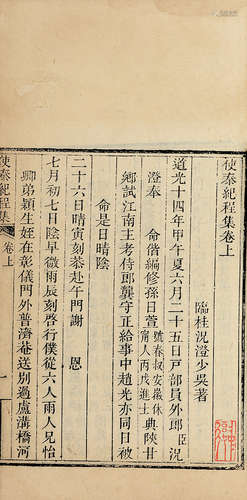 使秦紀程集卷上
臨桂況澄少吳著
道光十四年甲午夏六月二十五日戶部員外郎臣況
澄奉　命偕編修孫日萱號春叔安徽休
甯人丙戌進士典陝甘
鄉試江南主考侍郎龔守正給事中趙光亦同日被
命是日晴陰
二十六日晴寅刻恭赴午門謝　恩
七月初七日陰早微雨辰刻啓行僕從六人兩人兄怡
卿弟穎生姪在彰儀門外普濟菴送別過盧溝橋河
使秦紀程集
卷上